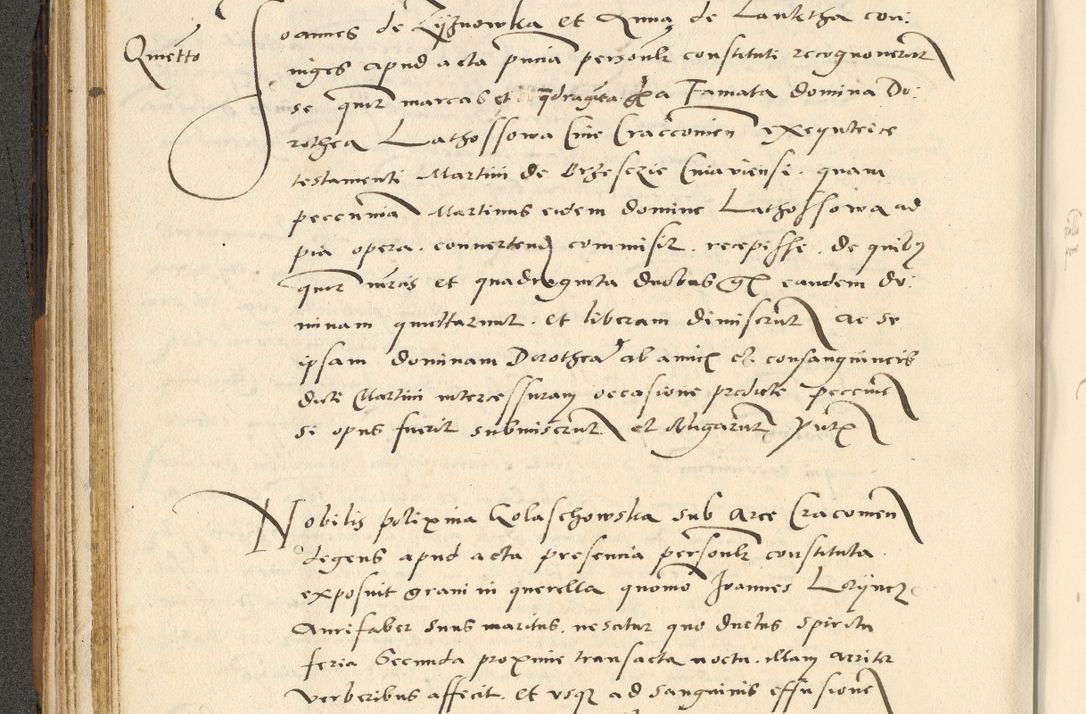 Joannes de Zyznowka et Anna de Lantctha con:
Quietto
iuges apud acta pncia personlr constituti recognouerunt
se quinq marcas et qdraginta gr a Famata domina Do:
rothea Lathossowa Ciue Cracouien exequtrice
testamenti Martini de Brzesczie Cuiauiensi. quam
pecuniam Martinus eidem domine Lathossowa ad
pia opera. conuertend commisit. recepisse. de quibus
quinq mrcis et quadraginta duobus gr eandem do:
minam quittarunt. et liberam dimiserunt ac se
ipsam dominam Dorothea ab amicis et consanguineis
dicti Martini intercessuram occasione predicte pecunie
si opus fuerit submiserunt et obligarunt
Nobilis polixina Golaschowska sub Arce Cracouien
degens apud acta presencia personlr constituta.
exposuit graui in querella quomo Joannes
Aurifaber suus maritus. nescitur quo ductus spiritu
feria Secunda proxime transacta noctu. illam
verberibus affecit. et vsq ad sanguinis effusione